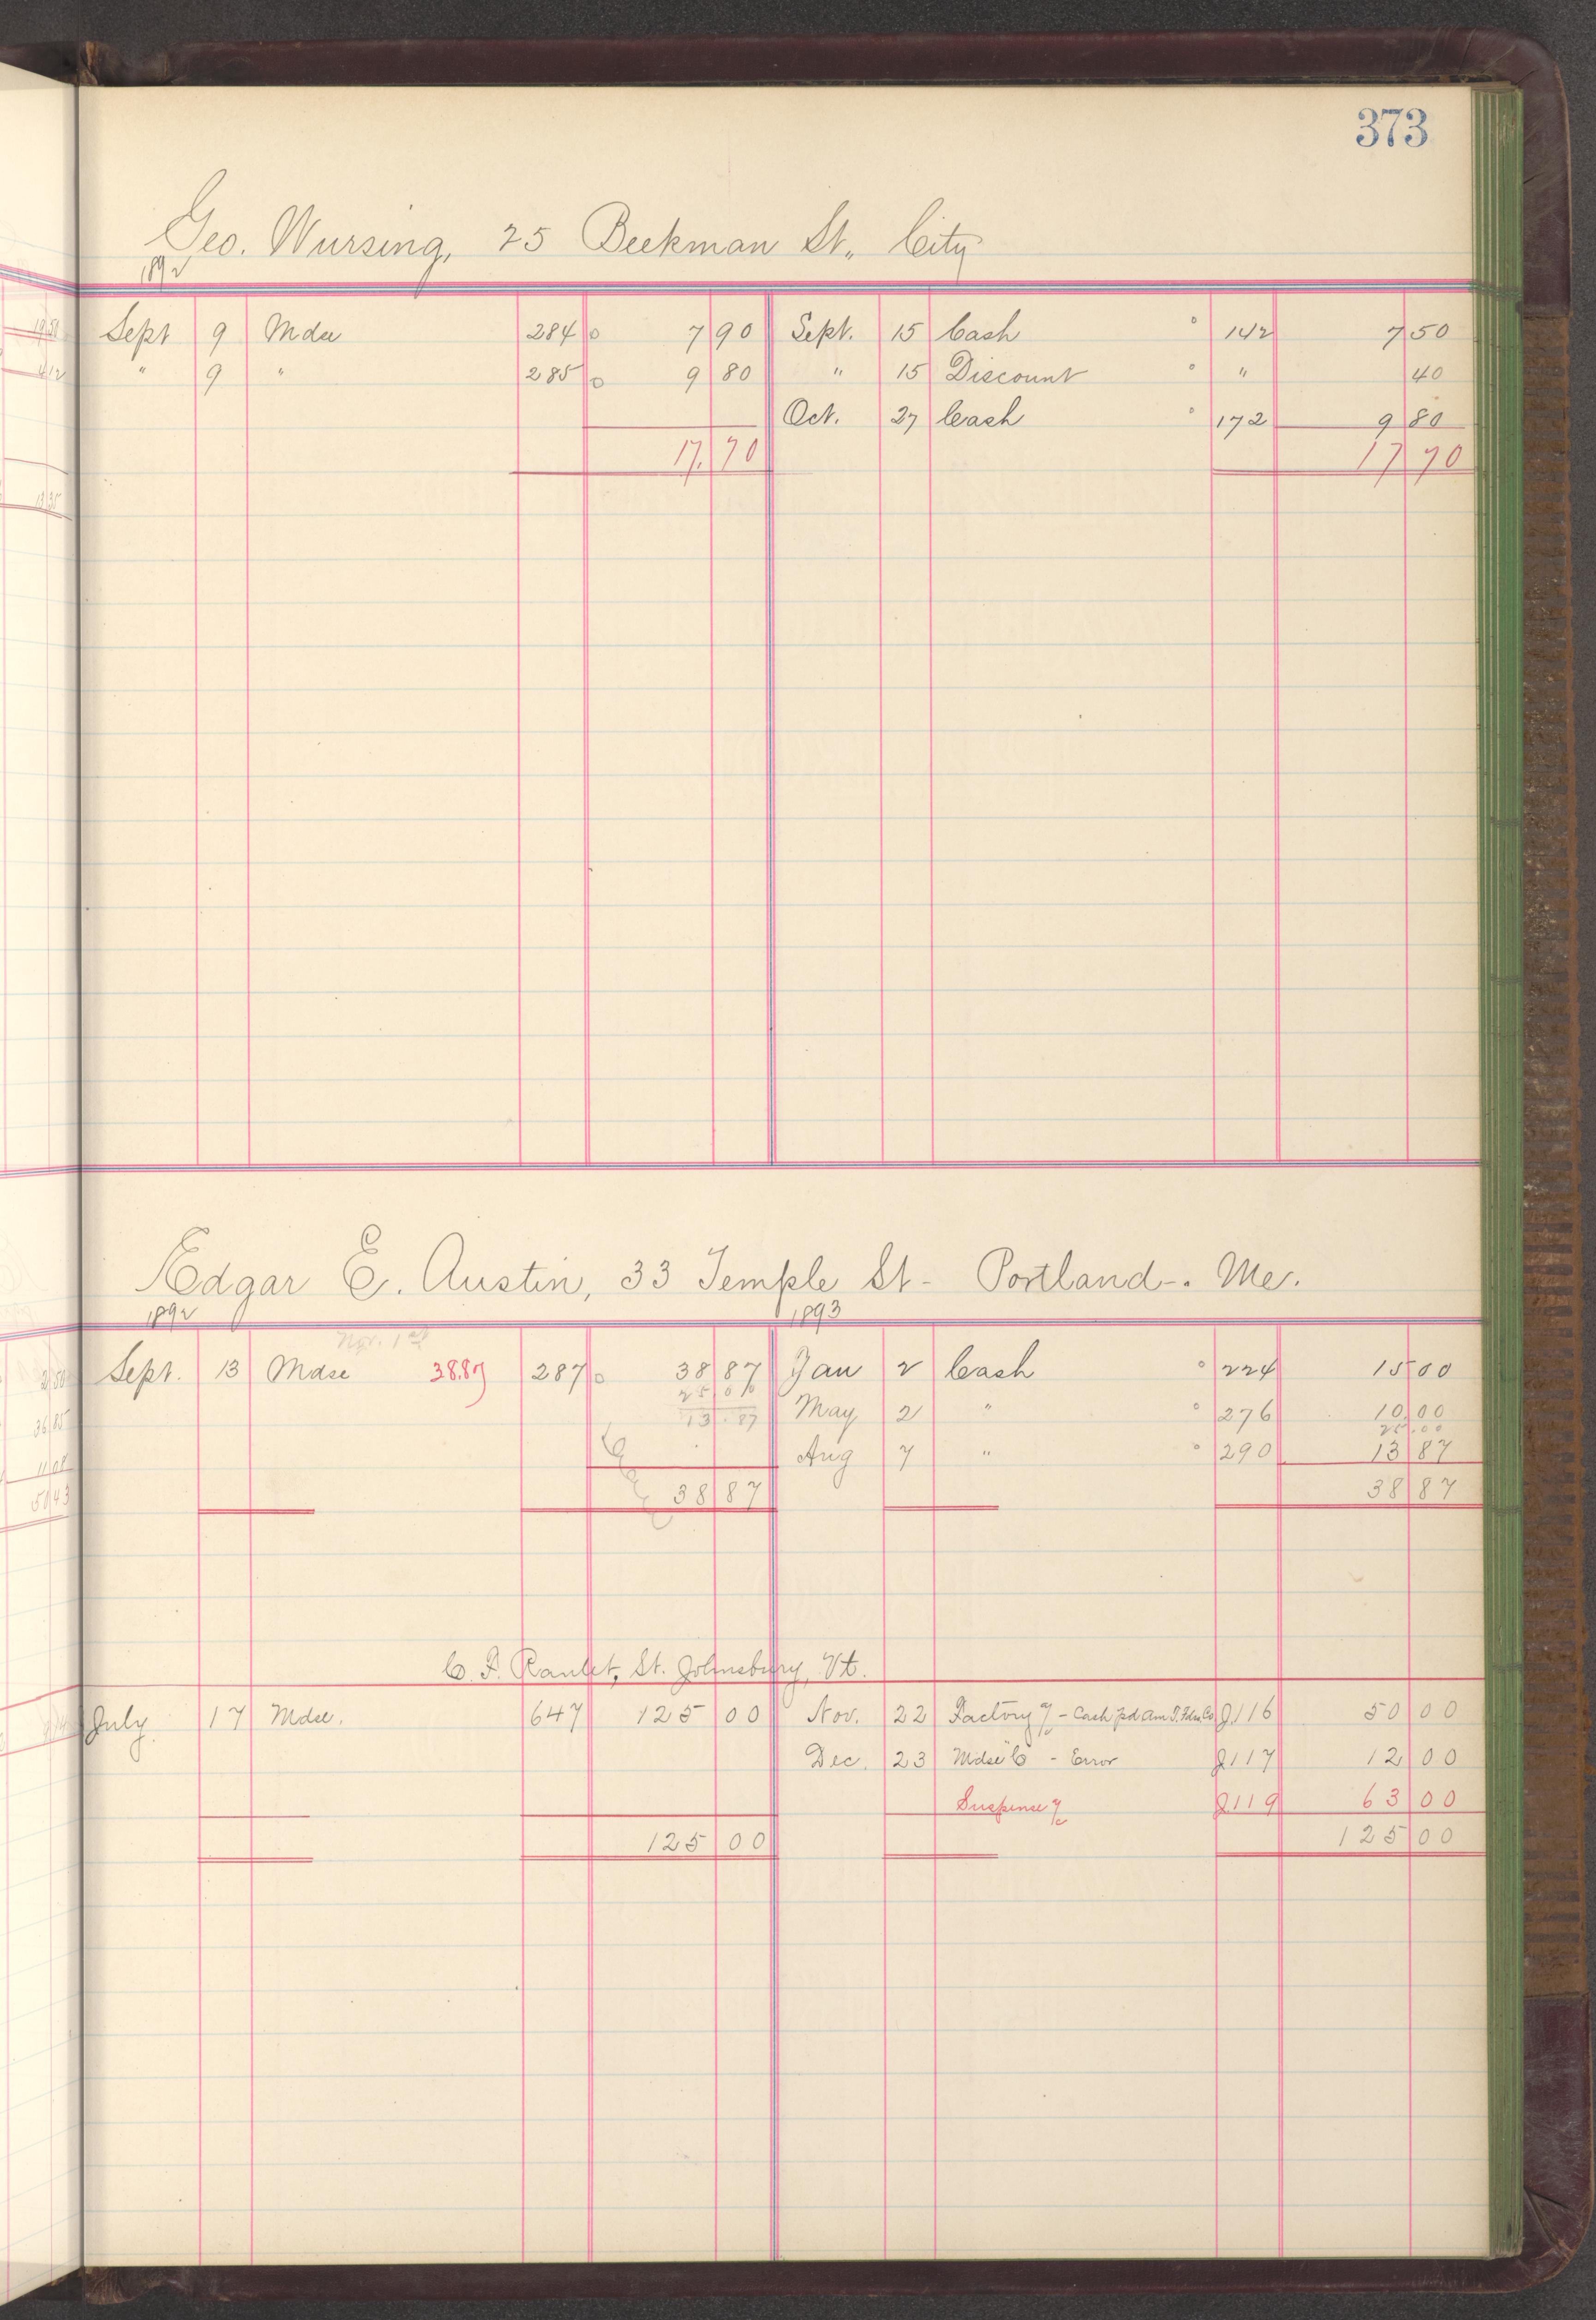 373
Geo. Wursing, 25 Beekman St., City
1892
Sept 9 Mdse 284 7 90 Sept. 15 Cash 142 7 50
" 9 " 285 9 80 " 15 Discount " 40
Oct. 27 Cash 172 9 80
17.70 17 70
Edgar E. Austin, 33 Temple St - Portland -. Me.
1892 1893
Nov. 1st
Sept. 13 Mdse 38.87 287 38 87 Jan 2 Cash 224 15 00
25 00
13.87 May 2 " 276 10.00
25.00
Aug 7 " 290 13 87
38 87 38 87
St. Johnsbury, Vt.
July 17 Mdse. 647 125 00 Nov. 22 Factory a/c - Cash pd Am. J116 50 00
Dec. 23 Mdse "C" - Error J117 12 00
Suspense a/c J119 63 00
125 00 125 00